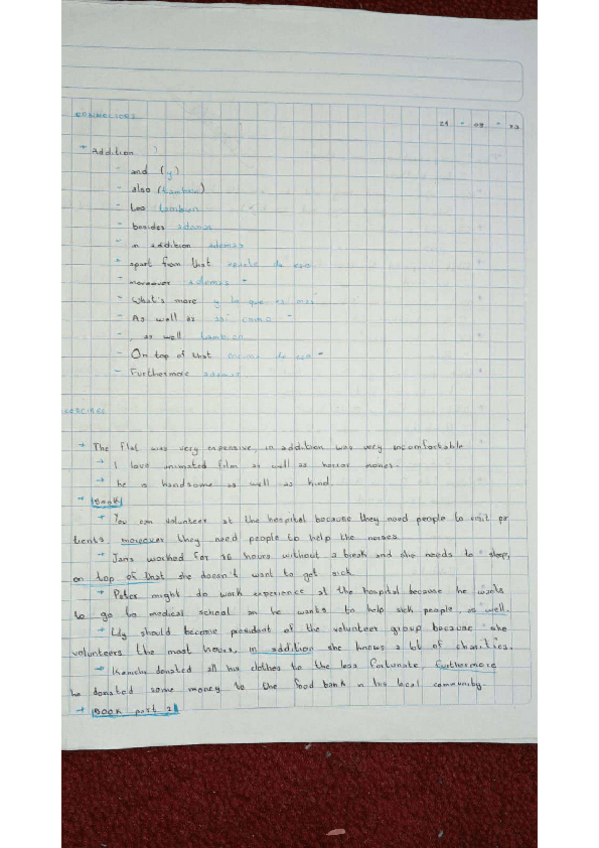 CONNECTORS
21 - 09 - 22
→ addition
- and (y)
- also (tambien)
- too tambien
- besides ademas
- in addition ademas
- apart from that aparte de eso
- moreover ademas
- What's more y lo que es mas
- As well as asi como
- , as well tambien
- On top of that encima de eso
- Furthermore ademas
EXERCISES
→ The flat was very expensive, in addition was very incomfortable
→ I love animated film as well as horror movies.
→ he is handsome as well as kind
→ BOOK
→ You can volunteer at the hospital because they need people to visit pa
tients, moreover they need people to help the nurses
→ Jana worked for 16 hours without a break and she needs to sleep,
on top of that she doesn't want to get sick
→ Peter might do work experience at the hospital because he wants
to go to medical school he wants to help sick people, as well.
→ Lily should become president of the volunteer group because she
volunteers the most hours, in addition she knows a lot of charities.
→ donated all his clothes to the less fortunate, furthermore
he donated some money to the food bank in his local community.
→ BOOK part 2